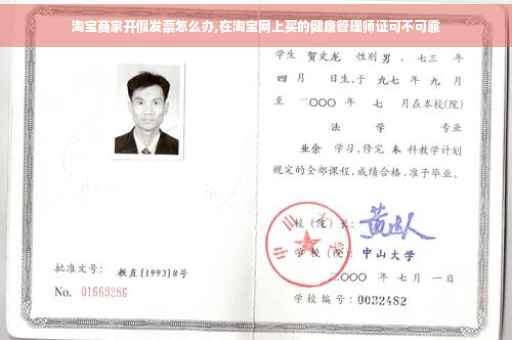 淘宝商家开假发票怎么办,在淘宝网上买的健康管理师证可不可靠
学生 贺文龙 性别 男 、七三 年
四月 日生,于 九七 年 九 月
至 二〇〇〇 年 七 月在本校(院)
法学 专业
业余 学习,修完 本 科教学计划
规定的全部课程,成绩合格,准予毕业。
校(院)长:
学校(院): 中山大学
二〇〇〇 年 七 月 一 日
批准文号: 教直[1993]8号
No. 01669286
学校编号: 0032482